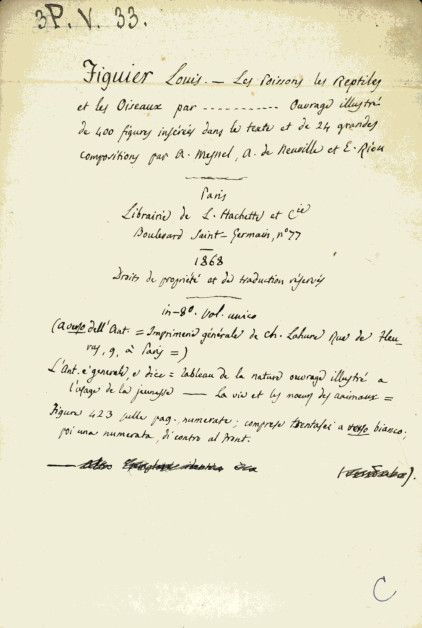 3P.V. 33.
Figuier Louis. — Les Poissons les Reptiles
et les Oiseaux par ----------- Ouvrage illustré
de 400 figures insérées dans le texte et de 24 grandes
compositions par A. Mesnel, A. de Neuville et E. Riou
Paris
Librairie de L. Hachette et Cie
Boulevard Saint-Germain, n° 77
1868
Droits de propriété et de traduction réservés
in-8°. vol. unico
(a verso dell'Ant. = Imprimerie générale de Ch. Lahure Rue de Fleu-
rus, 9, à Paris =)
L'Ant. e generale, e dice = Tableau de la nature ouvrage illustré a
l'usage de la jeunesse — La vie et les mœurs des animaux =
Figure 423 sulle pag. numerate; comprese trentasei a verso bianco;
poi una numerata, di contro al front.
C